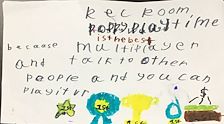 Rec Room
poppy playtime
is the best
because multiplayer
and talk to other
people and you can
play it vr
1st
1st